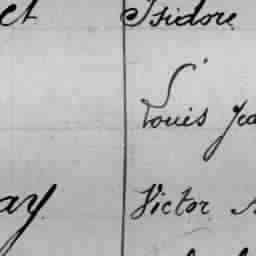 et Isidore
Louis Jea
ay Victor